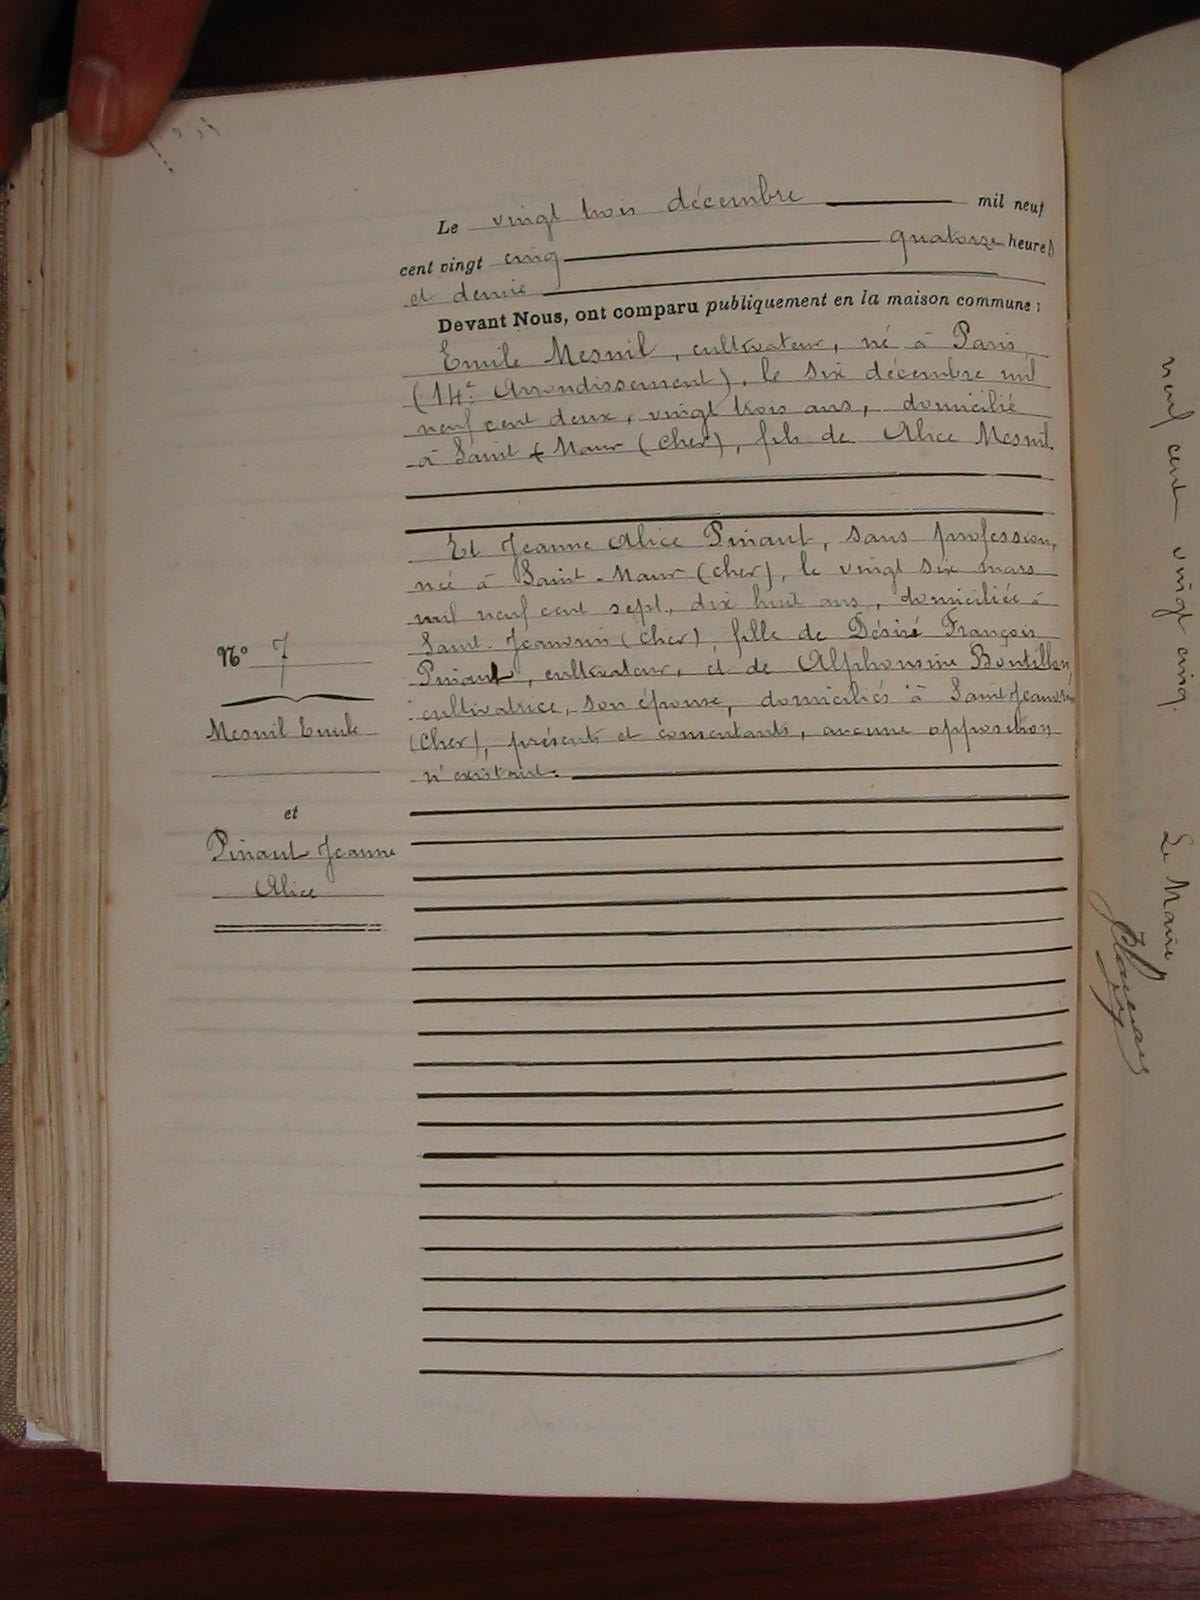 Le vingt trois décembre mil neuf
cent vingt cinq quatorze heures
et demie
Devant Nous, ont comparu publiquement en la maison commune :
Emile Mesnil, cultivateur, né à Paris
(14e Arrondissement), le six décembre mil
neuf cent deux, vingt trois ans, domicilié
à Saint-Maur (Cher), fils de Alice Mesnil.
Et Jeanne Alice Pinaut, sans profession,
née à Saint-Maur (Cher), le vingt six mars
mil neuf cent sept, dix huit ans, domiciliée à
Saint-Jeanvrin (Cher), fille de Désiré François
Pinaut, cultivateur, et de Alphonsine Boutillon
cultivatrice, son épouse, domiciliés à Saint Jeanvrin
(Cher), présents et consentants, aucune opposition
n'existant.
N° 7
Mesnil Emile
et
Pinaut Jeanne
Alice
neuf cent vingt cinq.
Le Maire